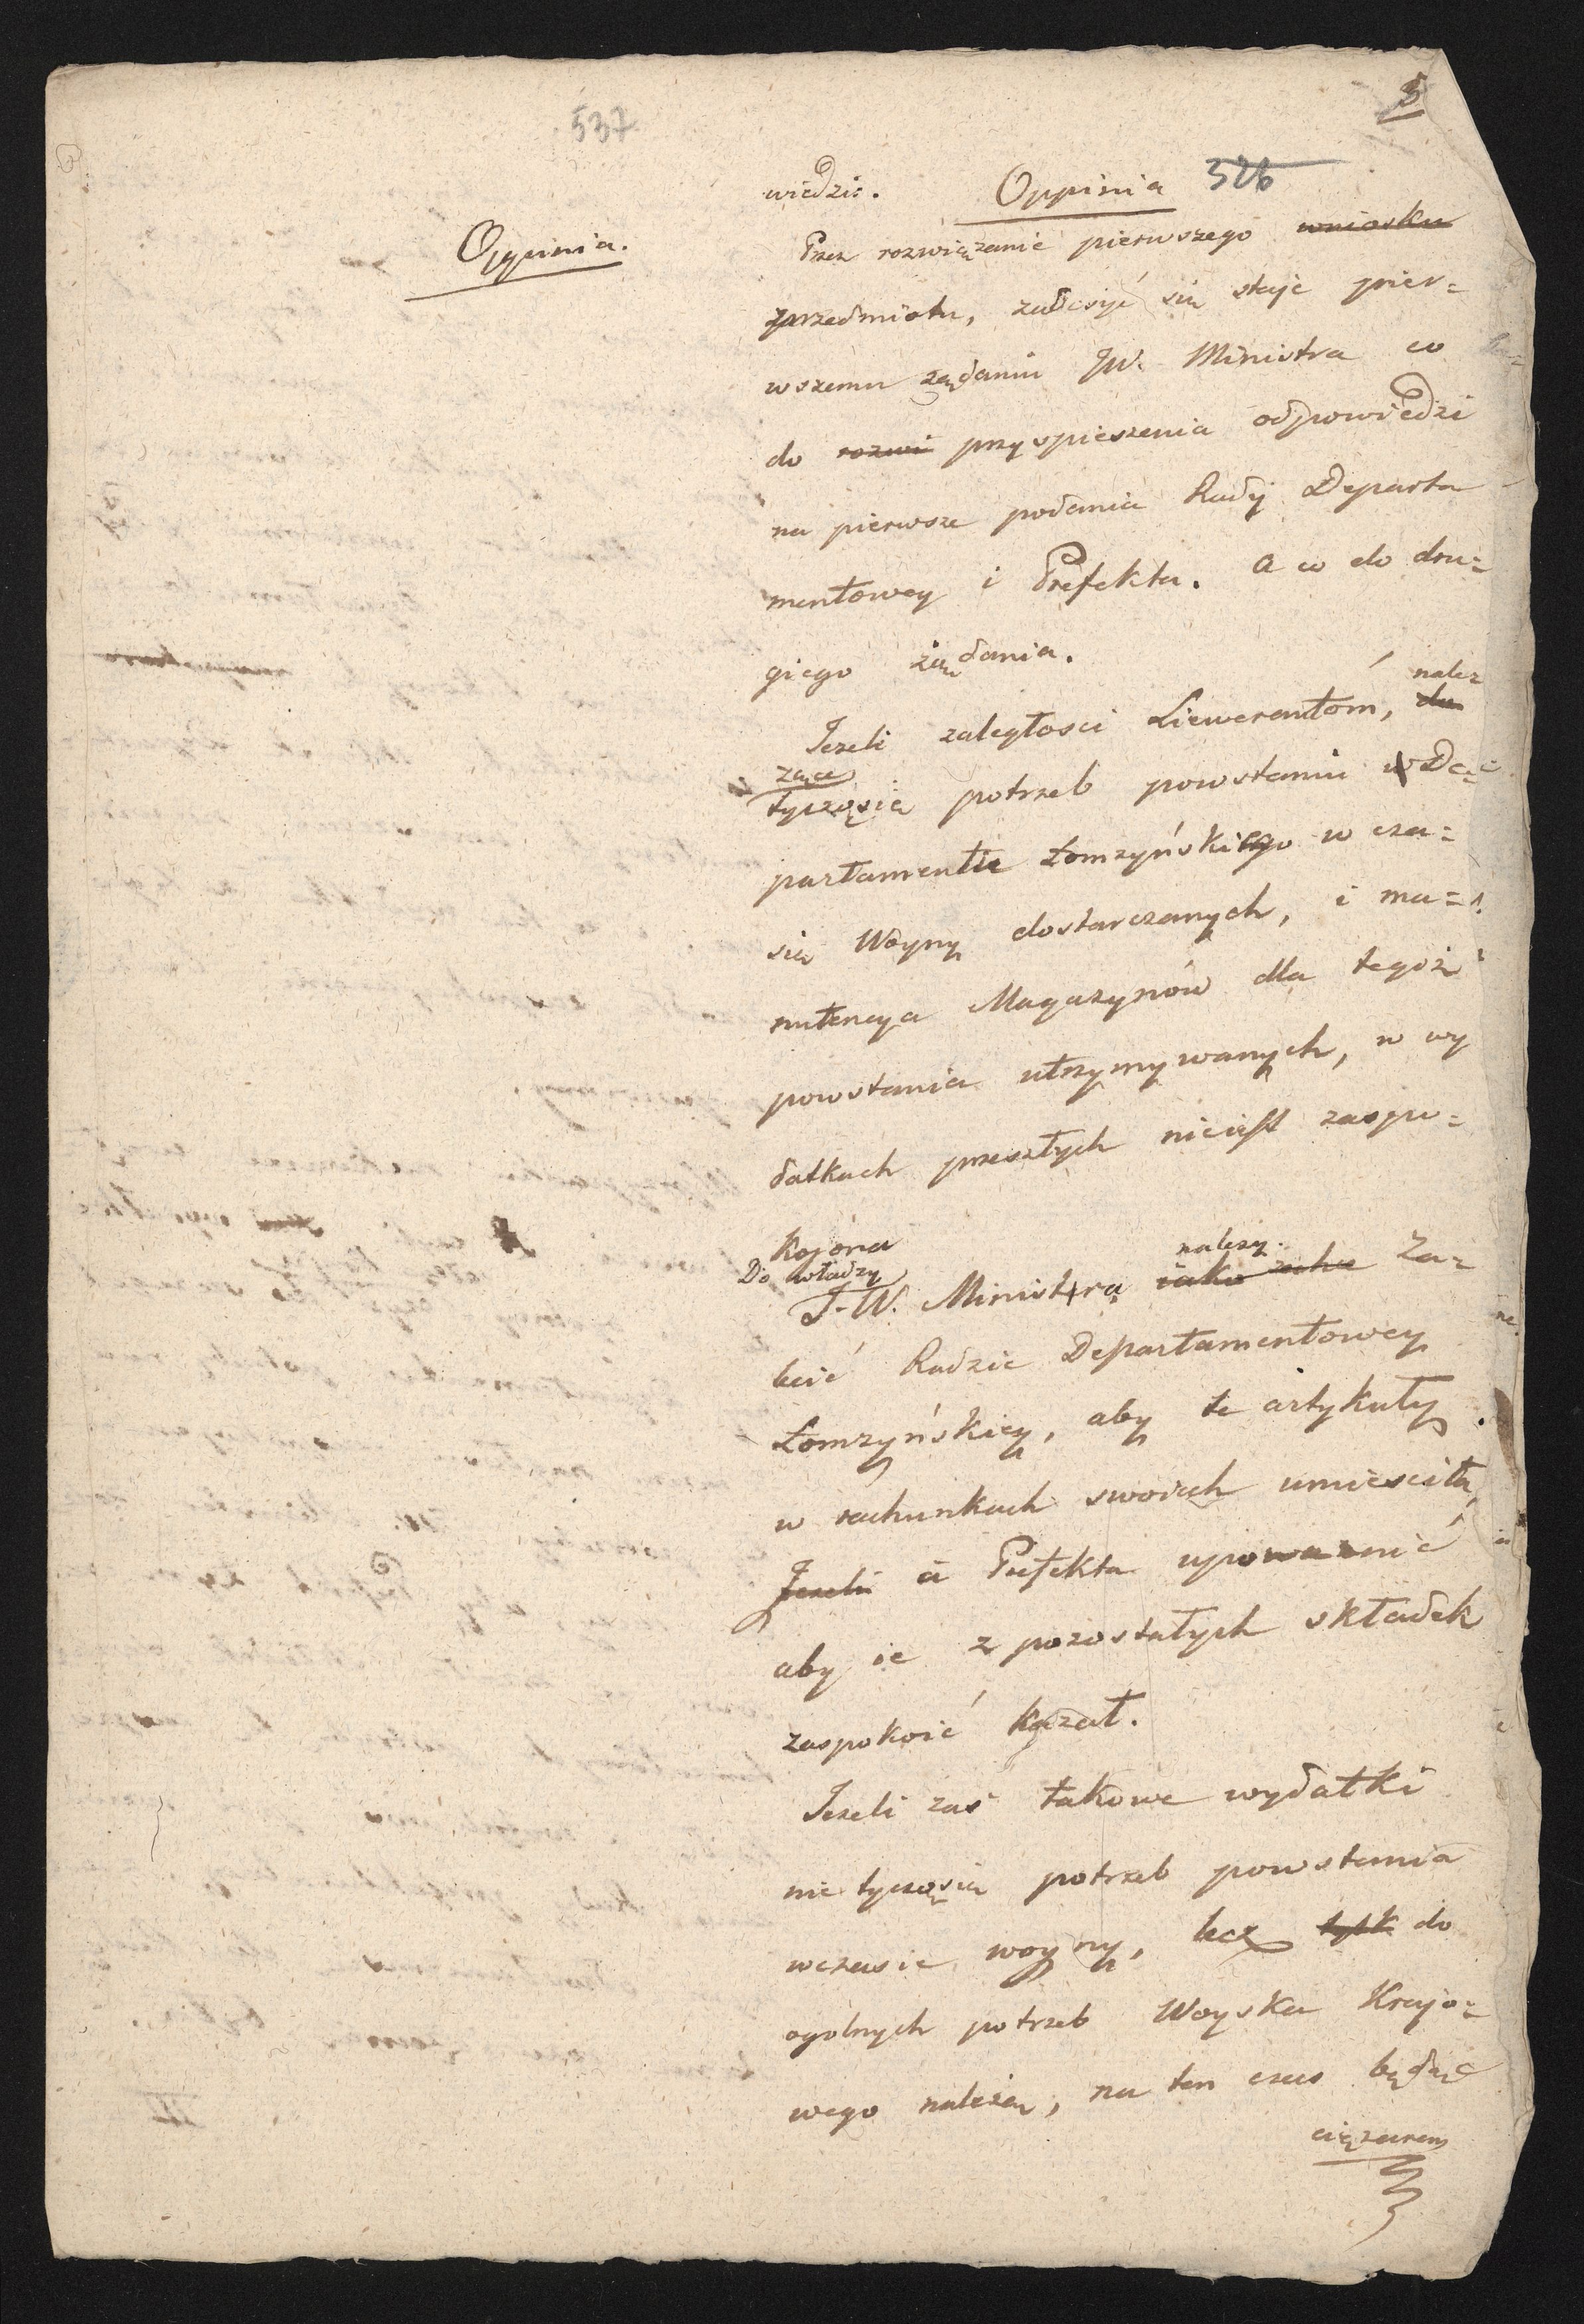 5
537
wiedzie. Oppinia 526
Oppinia.
Przez rozwiązanie pierwszego wniosku
przedmiotu, zadosyć się staje pier=
wszemu żądaniu JW. Ministra co
do rozwi przyspieszenia odpowiedzi
na pierwsze podania Rady Departa
mentowey i Prefekta. a co do dru=
giego żądania.
nalez
Jezeli zaległosci Liewerantom, da
zące
tyczą się potrzeb powstaniu w De=
partamentie Łomzyńskiego w cza=
się Woyny dostarczanych, i ma=
nutencya Magazynów dla tegoż
powstania utrzymywanych, w wy
datkach przeszłych nieiest zaspo=
kojona
Do władzy należy
J.W. Ministra Za=
lecić Radzie Departamentowey
Łomzyńskiey, aby te artykuły
w rachunkach swoich umiesciła,
Jezeli a Prefekta upowaznić
aby ie z pozostałych składek
zaspokoić kazał.
Jezeli zaś takowe wydatki
nie tyczą się potrzeb powstania
wczasie woyny, lecz tylk do
ogolnych potrzeb Woyska Krajo=
wego należą, na ten czas będąc
ciężarem